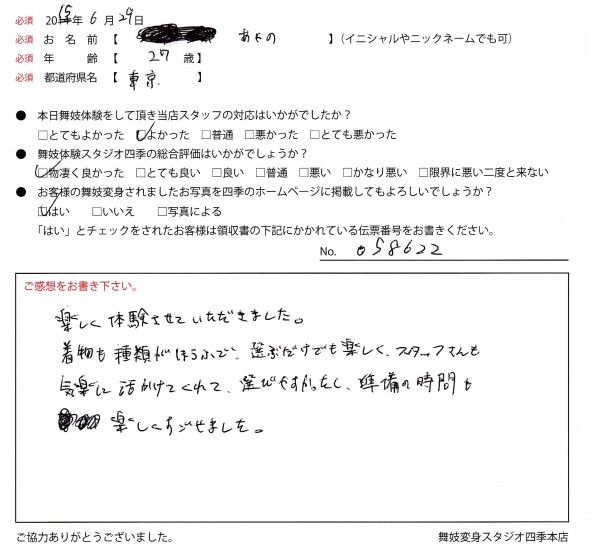 必須 2015年 6 月 29日
必須 お 名 前 【 あやの 】(イニシャルやニックネームでも可)
必須 年 齢 【 27 歳】
必須 都道府県名【 東京 】
● 本日舞妓体験をして頂き当店スタッフの対応はいかがでしたか?
□とてもよかった ☑よかった □普通 □悪かった □とても悪かった
● 舞妓体験スタジオ四季の総合評価はいかがでしょうか?
☑物凄く良かった □とても良い □良い □普通 □悪い □かなり悪い □限界に悪い二度と来ない
● お客様の舞妓変身されましたお写真を四季のホームページに掲載してもよろしいでしょうか?
☑はい □いいえ □写真による
「はい」とチェックをされたお客様は領収書の下記にかかれている伝票番号をお書きください。
No. 058622
ご感想をお書き下さい。
楽しく体験させていただきました。
着物も種類がほうふで、選ぶだけでも楽しく、スタッフさんも
気楽に話かけてくれて、選びやすかったし、準備の時間も
楽しくすごせました。
ご協力ありがとうございました。 舞妓変身スタジオ四季本店